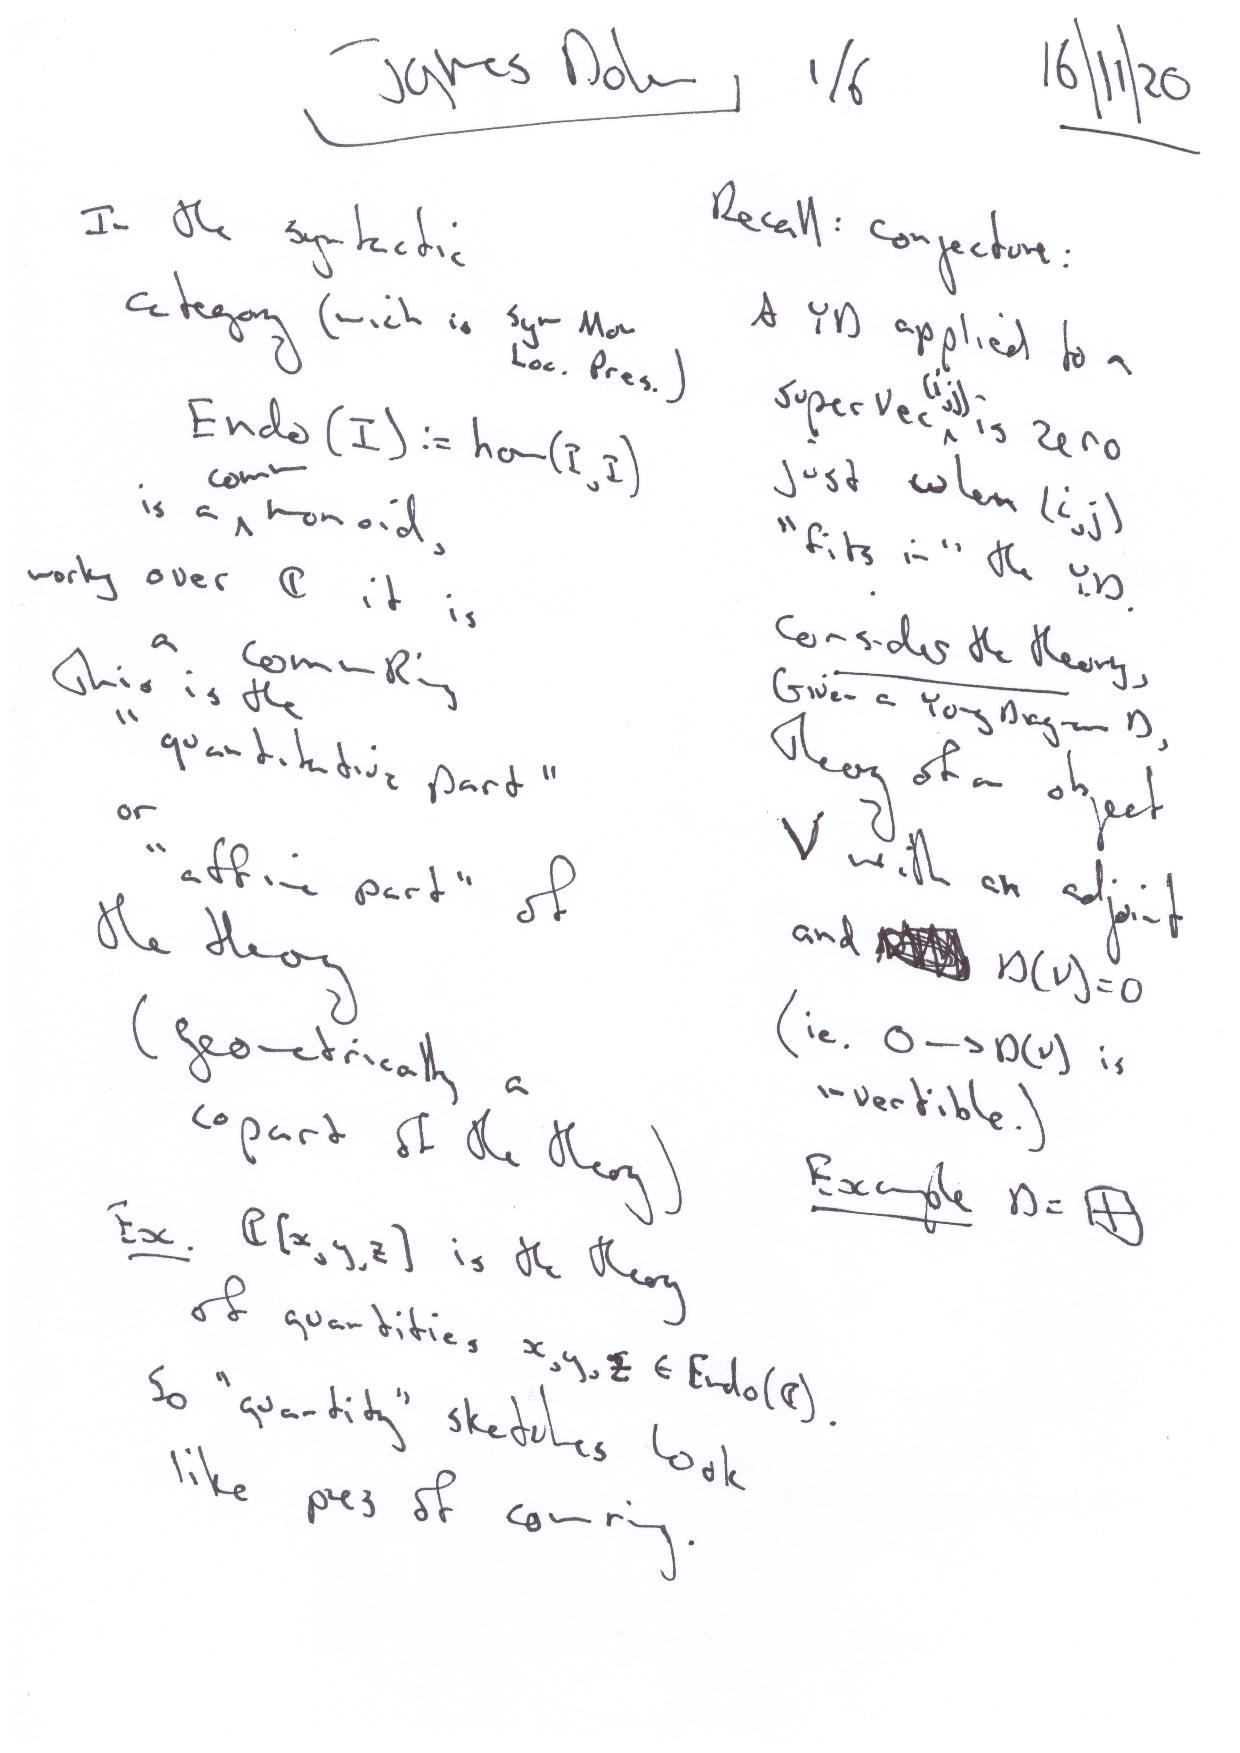 James Dolan 1/6 16/11/20
In the syntactic
category (wich is Sym Mon
Loc. Pres.)
Endo(I) := hom(I,I)
comm
is a ^ monoid,
working over ℂ it is
a comm Ring
This is the
"quantitative part"
or
"affine part" of
the theory
(geometrically a
copart of the theory)
Ex. ℂ[x,y,z] is the theory
of quantities x,y,z ∈ Endo(ℂ).
So "quantity" sketches look
like pres of comm ring.
Recall: conjecture:
A YD applied to a
super Vec (i,j) ^ is zero
just when (i,j)
"fits in" the YD.
Consider the theory,
Given a Young Diagram D,
Theory of an object
V with an adjoint
and D(V)=0
(ie. 0 → D(V) is
invertible.)
Example D= ⊞